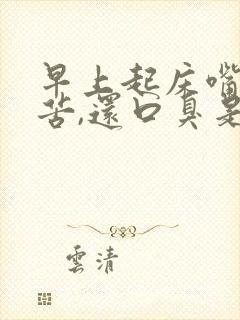 早上起床嘴
苦,還口臭是
雲清